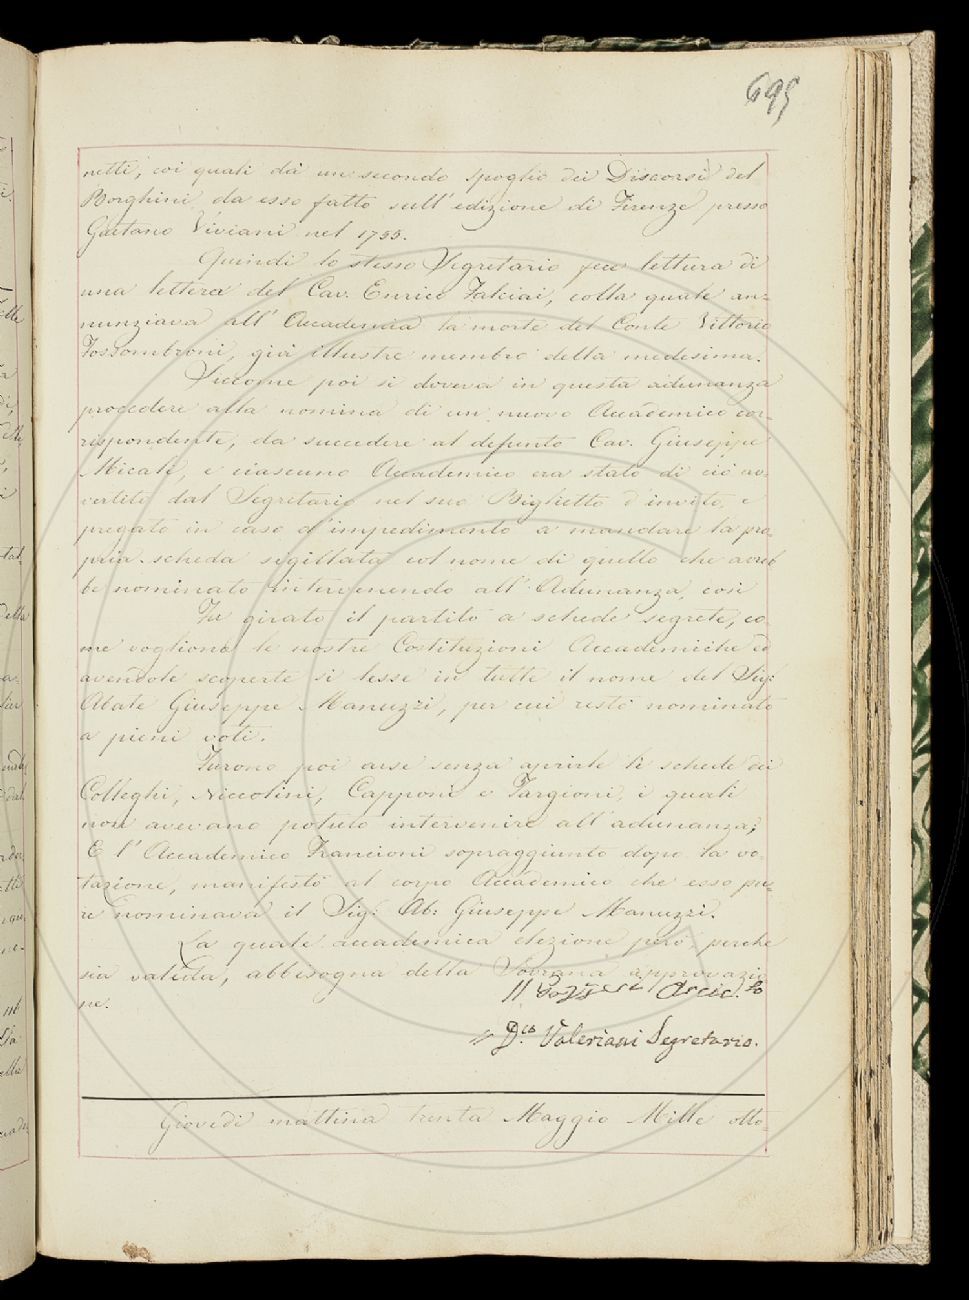 695
netti, coi quali dà un secondo spoglio dei Discorsi del
Borghini da esso fatto sull' edizione di Firenze presso
Gaetano Viviani nel 1755.
Quindi lo stesso Segretario fece lettura di
una lettera del Cav. Enrico Falciai, colla quale an=
nunziava all' Accademia la morte del Conte Vittorio
Fossombroni, già illustre membro della medesima.
Siccome poi si doveva in questa adunanza
procedere alla nomina di un nuovo Accademico cor=
rispondente, da succedere al defunto Cav. Giuseppe
Micali, e ciascuno Accademico era stato di ciò av=
vertito dal Segretario nel suo Biglietto d'invito, e
pregato in caso d'impedimento a mandare la pro=
pria scheda sigillata col nome di quello che avreb
be nominato intervenendo all' Adunanza, così
Fu girato il partito a schede segrete, co=
me vogliono le nostre Costituzioni Accademiche ed
avendole scoperte si lesse in tutte il nome del Sig:
Abate Giuseppe Manuzzi, per cui restò nominato
a pieni voti.
Furono poi arse senza aprirle le schede dei
Colleghi, Niccolini, Capponi e Targioni, i quali
non avevano potuto intervenire all' adunanza;
E l' Accademico Francioni sopraggiunto dopo la vo=
tazione, manifestò al corpo Accademico che esso pu=
re nominava il Sig: Ab: Giuseppe Manuzzi.
La quale accademica elezione però, perche
sia valida, abbisogna della Sovrana approvazio
ne.
Il Arcic.lo
D.co Valeriani Segretario.
Giovedì mattina trenta Maggio Mille otto=